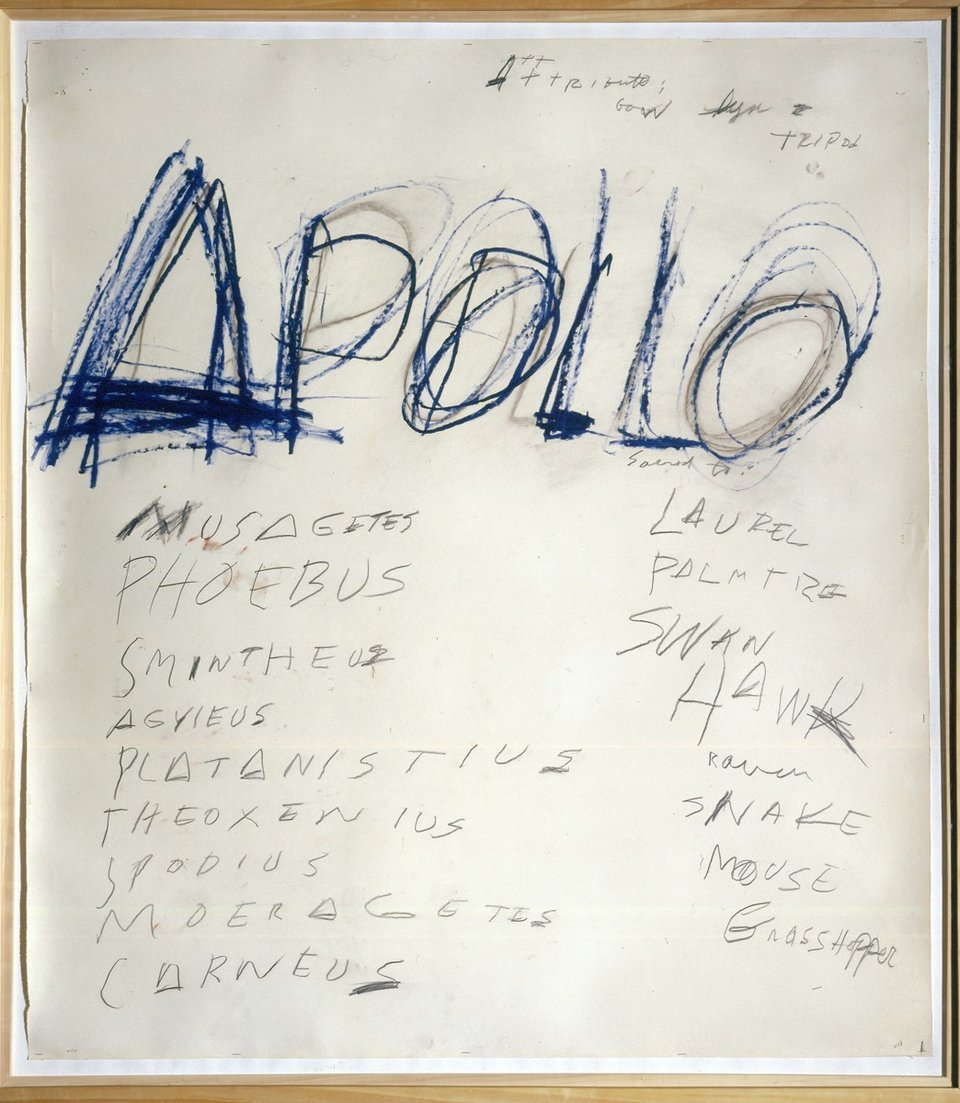 Attribute;
bow Lyre &
TRIPOd
APOLLO
Sacred to:
MUSAGETES
PHOEBUS
SMINTHEUS
AGYIEUS
PLATANISTIUS
THEOXENIUS
SPODIUS
MOERAGETES
CARNEUS
LAUREL
PALM TREE
SWAN
HAWK
RAVEN
SNAKE
MOUSE
GRASSHOPPER